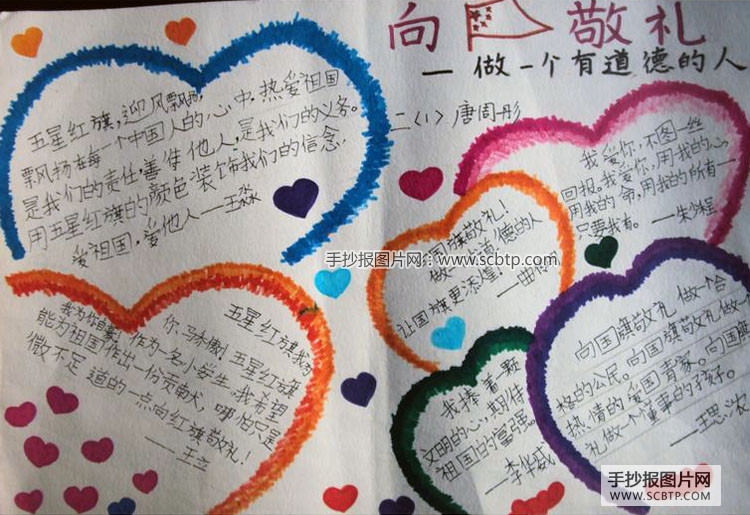 向 敬礼
—做一个有道德的人
二(1)唐周彤
五星红旗,迎风飘扬,
飘扬在每一个中国人的心中.热爱祖国
是我们的责任,善待他人,是我们的义务。
用五星红旗的颜色装饰我们的信念.
爱祖国,爱他人——王淼
我爱你,不图一丝
回报。我爱你,用我的心,
用我的命,用我的所有——
只要我有。——朱
国旗敬礼!
做一 道德的人
让国旗更添煌!
——曲
手抄报图片网:www.scbtp.com
五星红旗我为
你,骄傲!五星红旗
我为你自豪!作为一名小学生,我希望
能为祖国作出一份贡献,哪怕只是
微不足 道的一点向红旗敬礼!
——王立
我捧着一颗
文明的心,期待
祖国的富强。
——李华威
向国旗敬礼 做一个合
格的公民。向国旗敬礼做一
热情的爱国青家。向国旗
礼做一个懂事的孩子。
——王思
手抄报图片网
WWW.SCBTP.COM